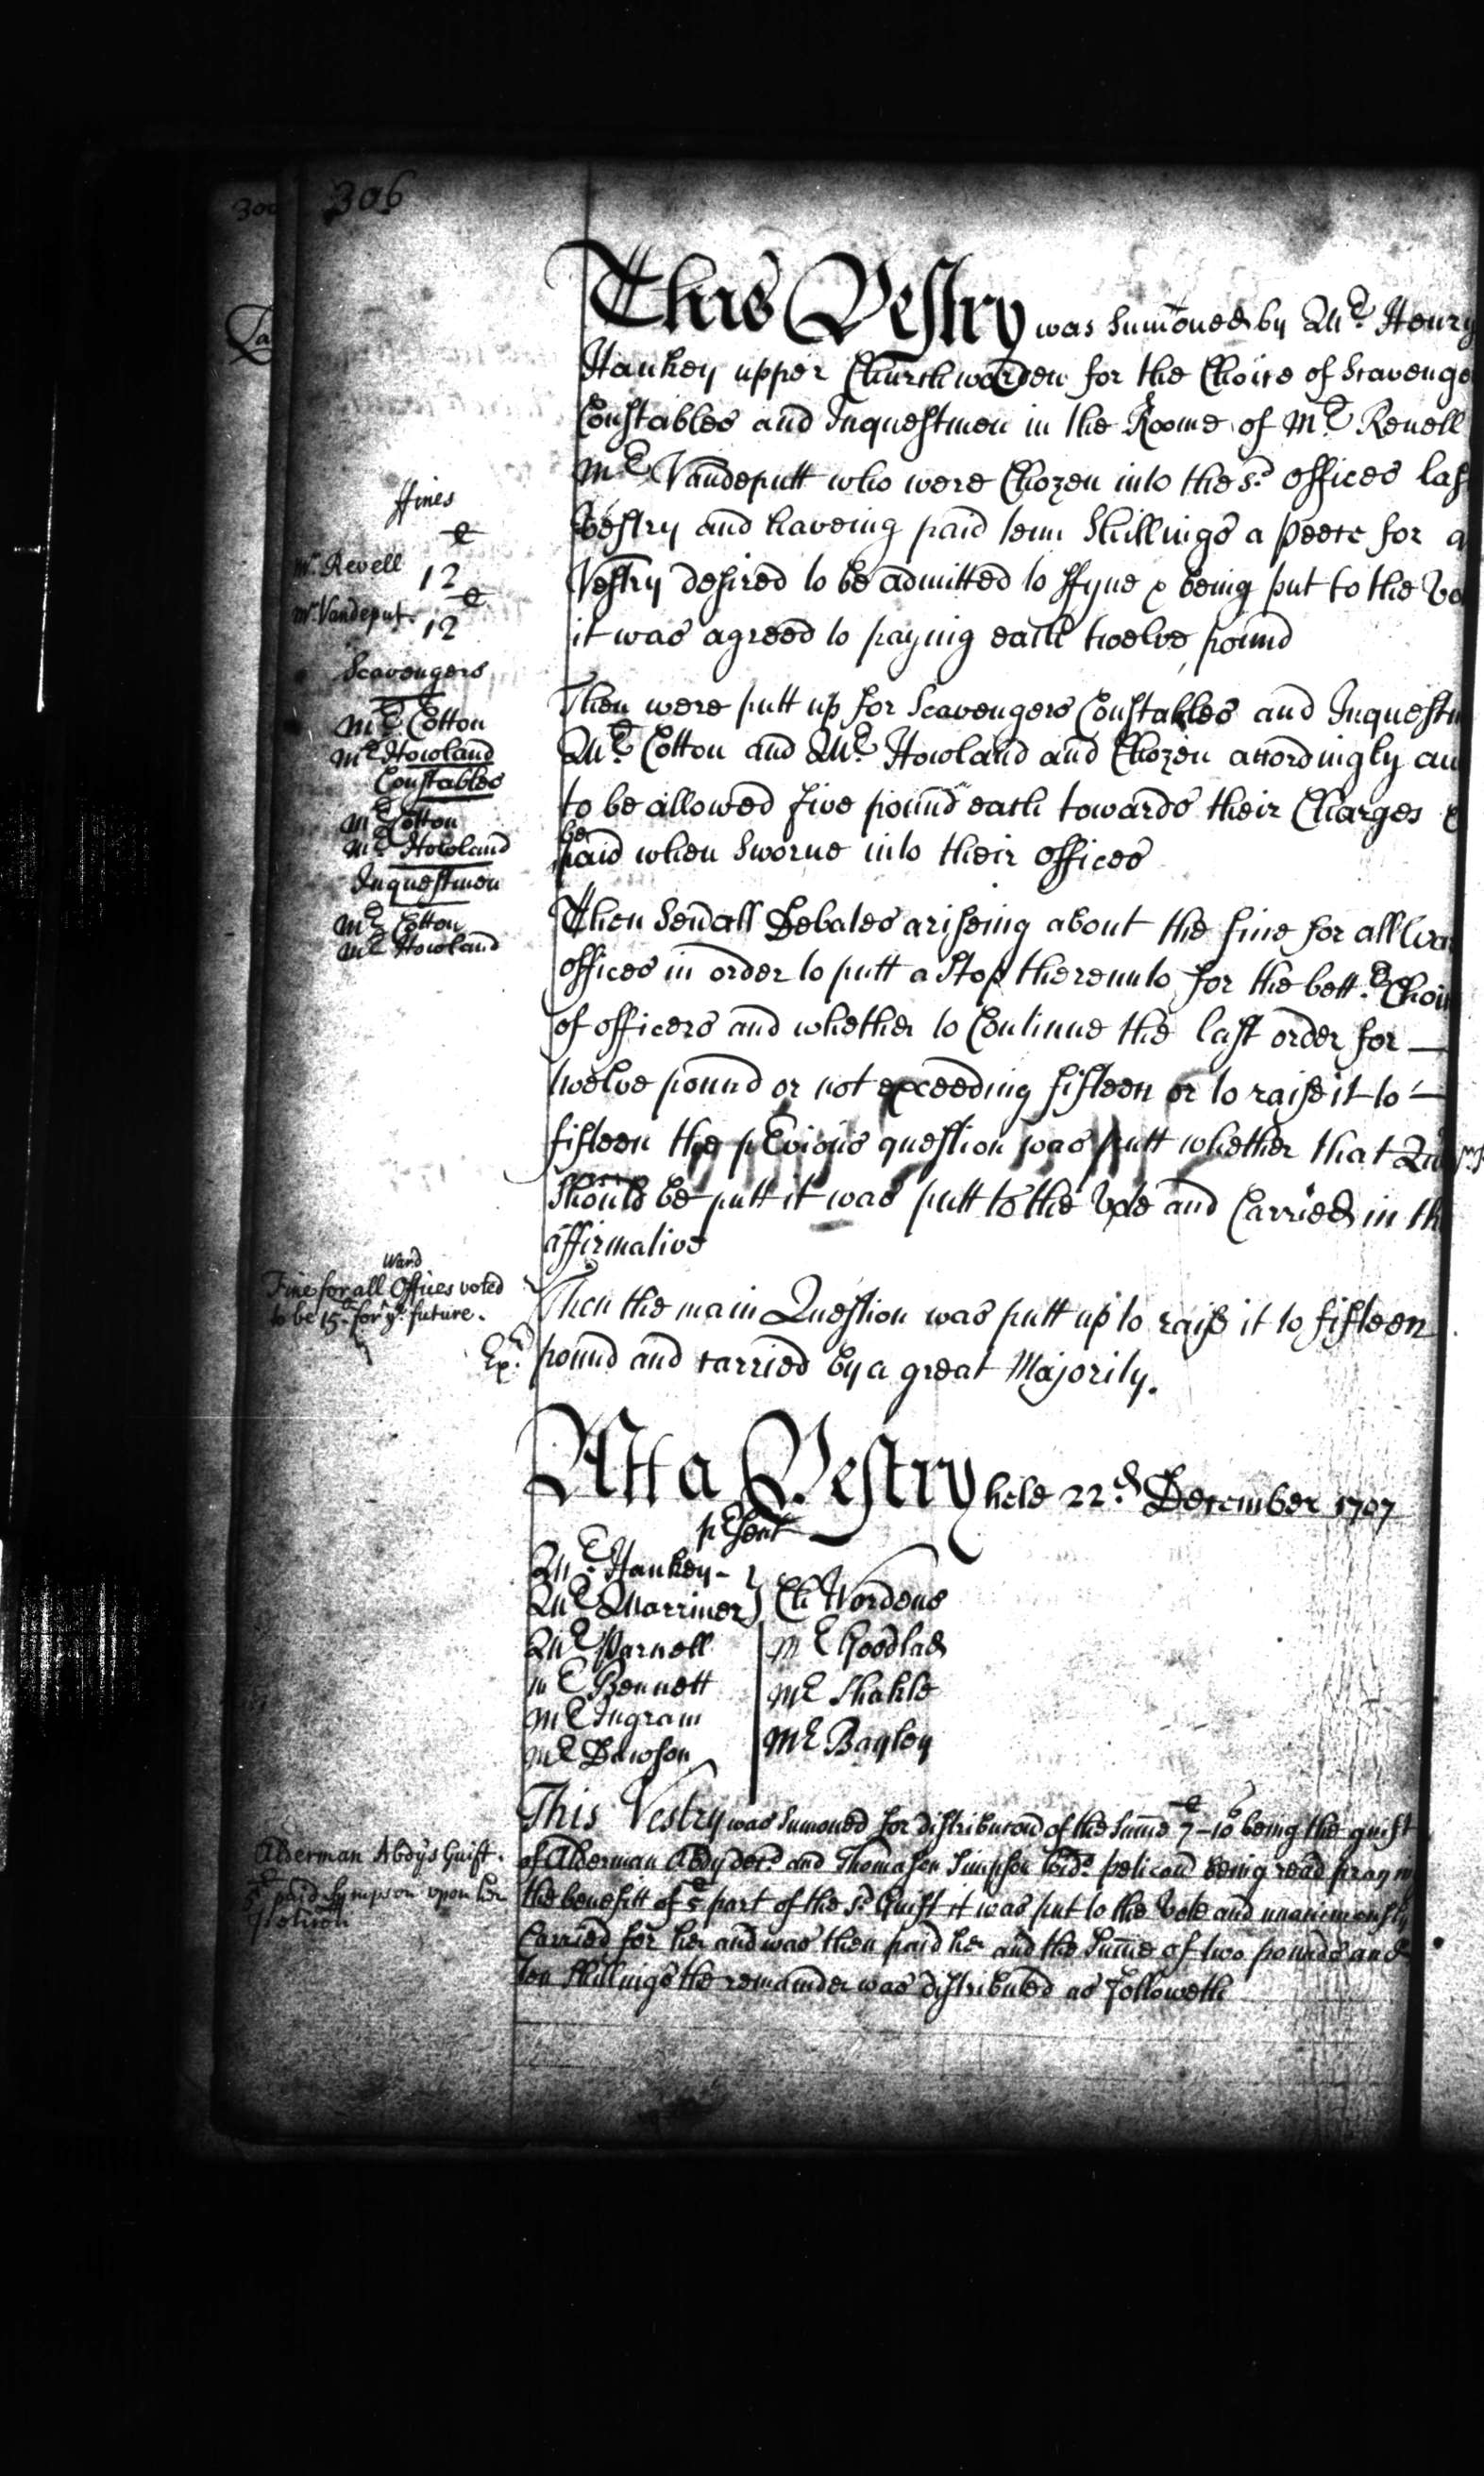 306
This Vestry was sum̄oned by Mr. Henry
Hankey upper Churchwarden for the Choice of Scavenge
Constables and Inquestmen in the Roome of Mr. Revell
Mr Vandeputt who were Chozen into the sd. offices las
Vestry and haveing paid tenn Shillings a peece for a
Vestry desired to be admitted to ffyne & being put to the Vo
it was agreed to paying each twelve pound
ffines
Mr. Revell 12
Mr. Vandeput. 12
Scavengers
Mr. Cotton
Mr Howland
Constables
Mr Cotton
Mr Howland
Inquestmen
Mr Cotton
Mr Howland
Then were putt up for Scavengers Constables and Inquestm
Mr. Cotton and Mr. Howland and Chozen accordingly an
to be allowed five pound each towards their Charges
be
paid when Sworne into their offices
Then Sevall Debates ariseing about the fine for all Wa
offices in order to putt a Stop thereunto for the bettr. Choi
of officers and whether to Continue the last order for —
twelve pound or not exceeding fifteen or to raise it to —
fifteen the pevious question was putt whether that Qu
Should be putt it was putt to the Vote and Carried in th
affirmative
Ward
Fine for all Offices voted
to be 15. for ye. future.
Then the main Question was putt up to raise it to fifteen
pound and carried by a great Majority.
Exd.
Att a Vestry held 22d. December 1707
pesent
Mr. Hankey -
Mr. Marriner } Ch Wardens
Mr Parnell
Mr Bennett
Mr Ingram
Mr Dawson
Mr Goodlad
Mr Shakle
Mr Bagley
This Vestry was Sumoned for distribucon of the Sum̄e 7-10 being the guift
of Alderman Abdy decd. and Thomasen Simpson Wido. peticon being read pray
the benefitt of 5 part of the sd. Guift it was put to the Vote and unanimously
Carried for her and was then paid her and the Sum̄e of two pounds and
ten Shillings the remainder was distributed as followeth
Alderman Abdy's Guift.
5 paid Sympson upon her
Petition